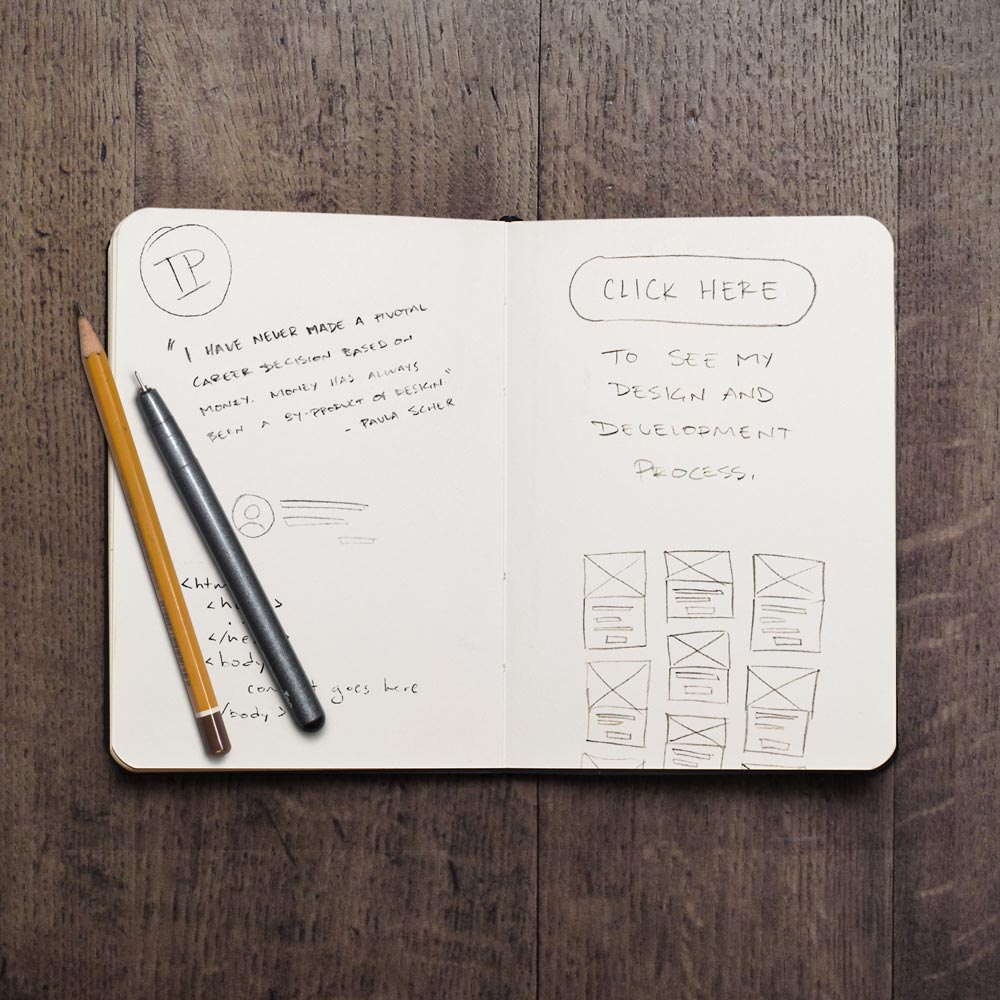 IP
"I HAVE NEVER MADE A PIVOTAL
CAREER DECISION BASED ON
MONEY. MONEY HAS ALWAYS
BEEN A BY-PRODUCT OF DESIGN."
- PAULA SCHER
<htm
<h >
. .
</he
<body
con t goes here
/body>
CLICK HERE
TO SEE MY
DESIGN AND
DEVELOPMENT
PROCESS.